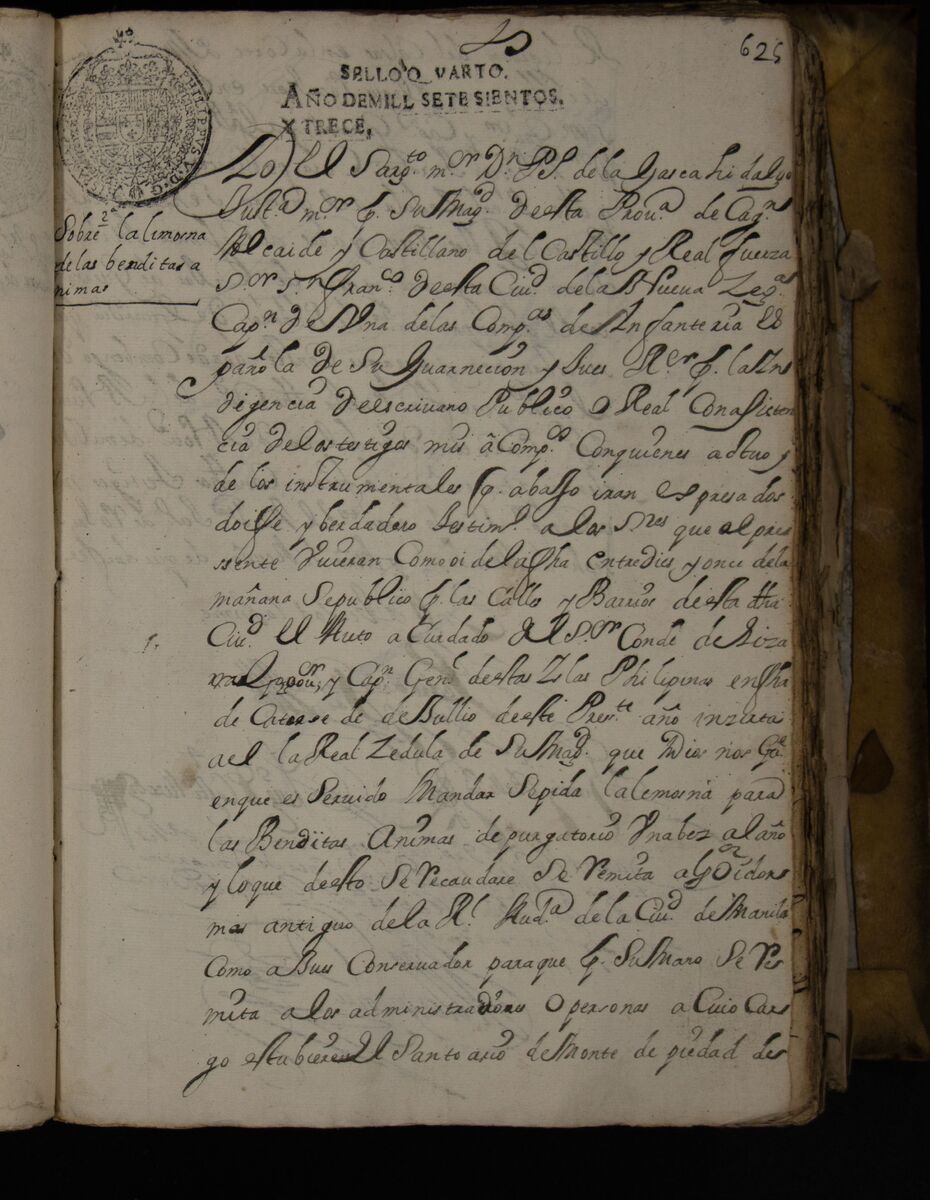 625
SELLO QVARTO.
AÑO DE MILL SETESIENTOS.
Y TRECE,
PHILIPPVS V. D. G.
Sobre la limosna
de las benditas a
nimas
Yo el Sarg.to m.or D.n de la Gasca hidalgo
Just.a m.or p. Su Mag.d desta Prou.a de Cag.n
Alcaide y Castillano del Castillo y Real fuerza
S.or S.n Fran.co desta Ciu.d de la Nueua Zeg.a
Cap.n de Vna de las Comp.as de Infanteria Es
pañola de Su Guarnecion y Jues R.or p. la Yn
digencia de escriuano Publico o Real Con asisten
cia de los testigos mis acomp.os Con quienes actuo y
de los instrumentales q. abasso iran espresados
doi ffe y berdadero testim.o a los S.res que el pres
sente Vieran Como oi de la fha entre dies y once de la
mañana Se publico p. las Calles y Barrios desta dha
Ciu.d el Auto a Cuidado del S.or Conde de Liza
rraga Gou.or y Cap.n Gen.l destas Yslas Philipinas en fha
de Catorse de de Jullio deste Pres.te año inserta
a el la Real Zedula de Su Mag.d que Dios nos G.de
en que es Seruido Mandar Se pida la lemosna para
las Benditas Animas de purgatorio Vna bez al año
y lo que desto Se recaudare Se remita al S.or Oidor
mas antiguo de la R.l Aud.a de la Ciu.d de Manila
Como a Jues Conseruador para que p. Su Mano Se re
mita a los administradores o personas a Cuio Car
go estubiere el Santoario de Monte de piedad des